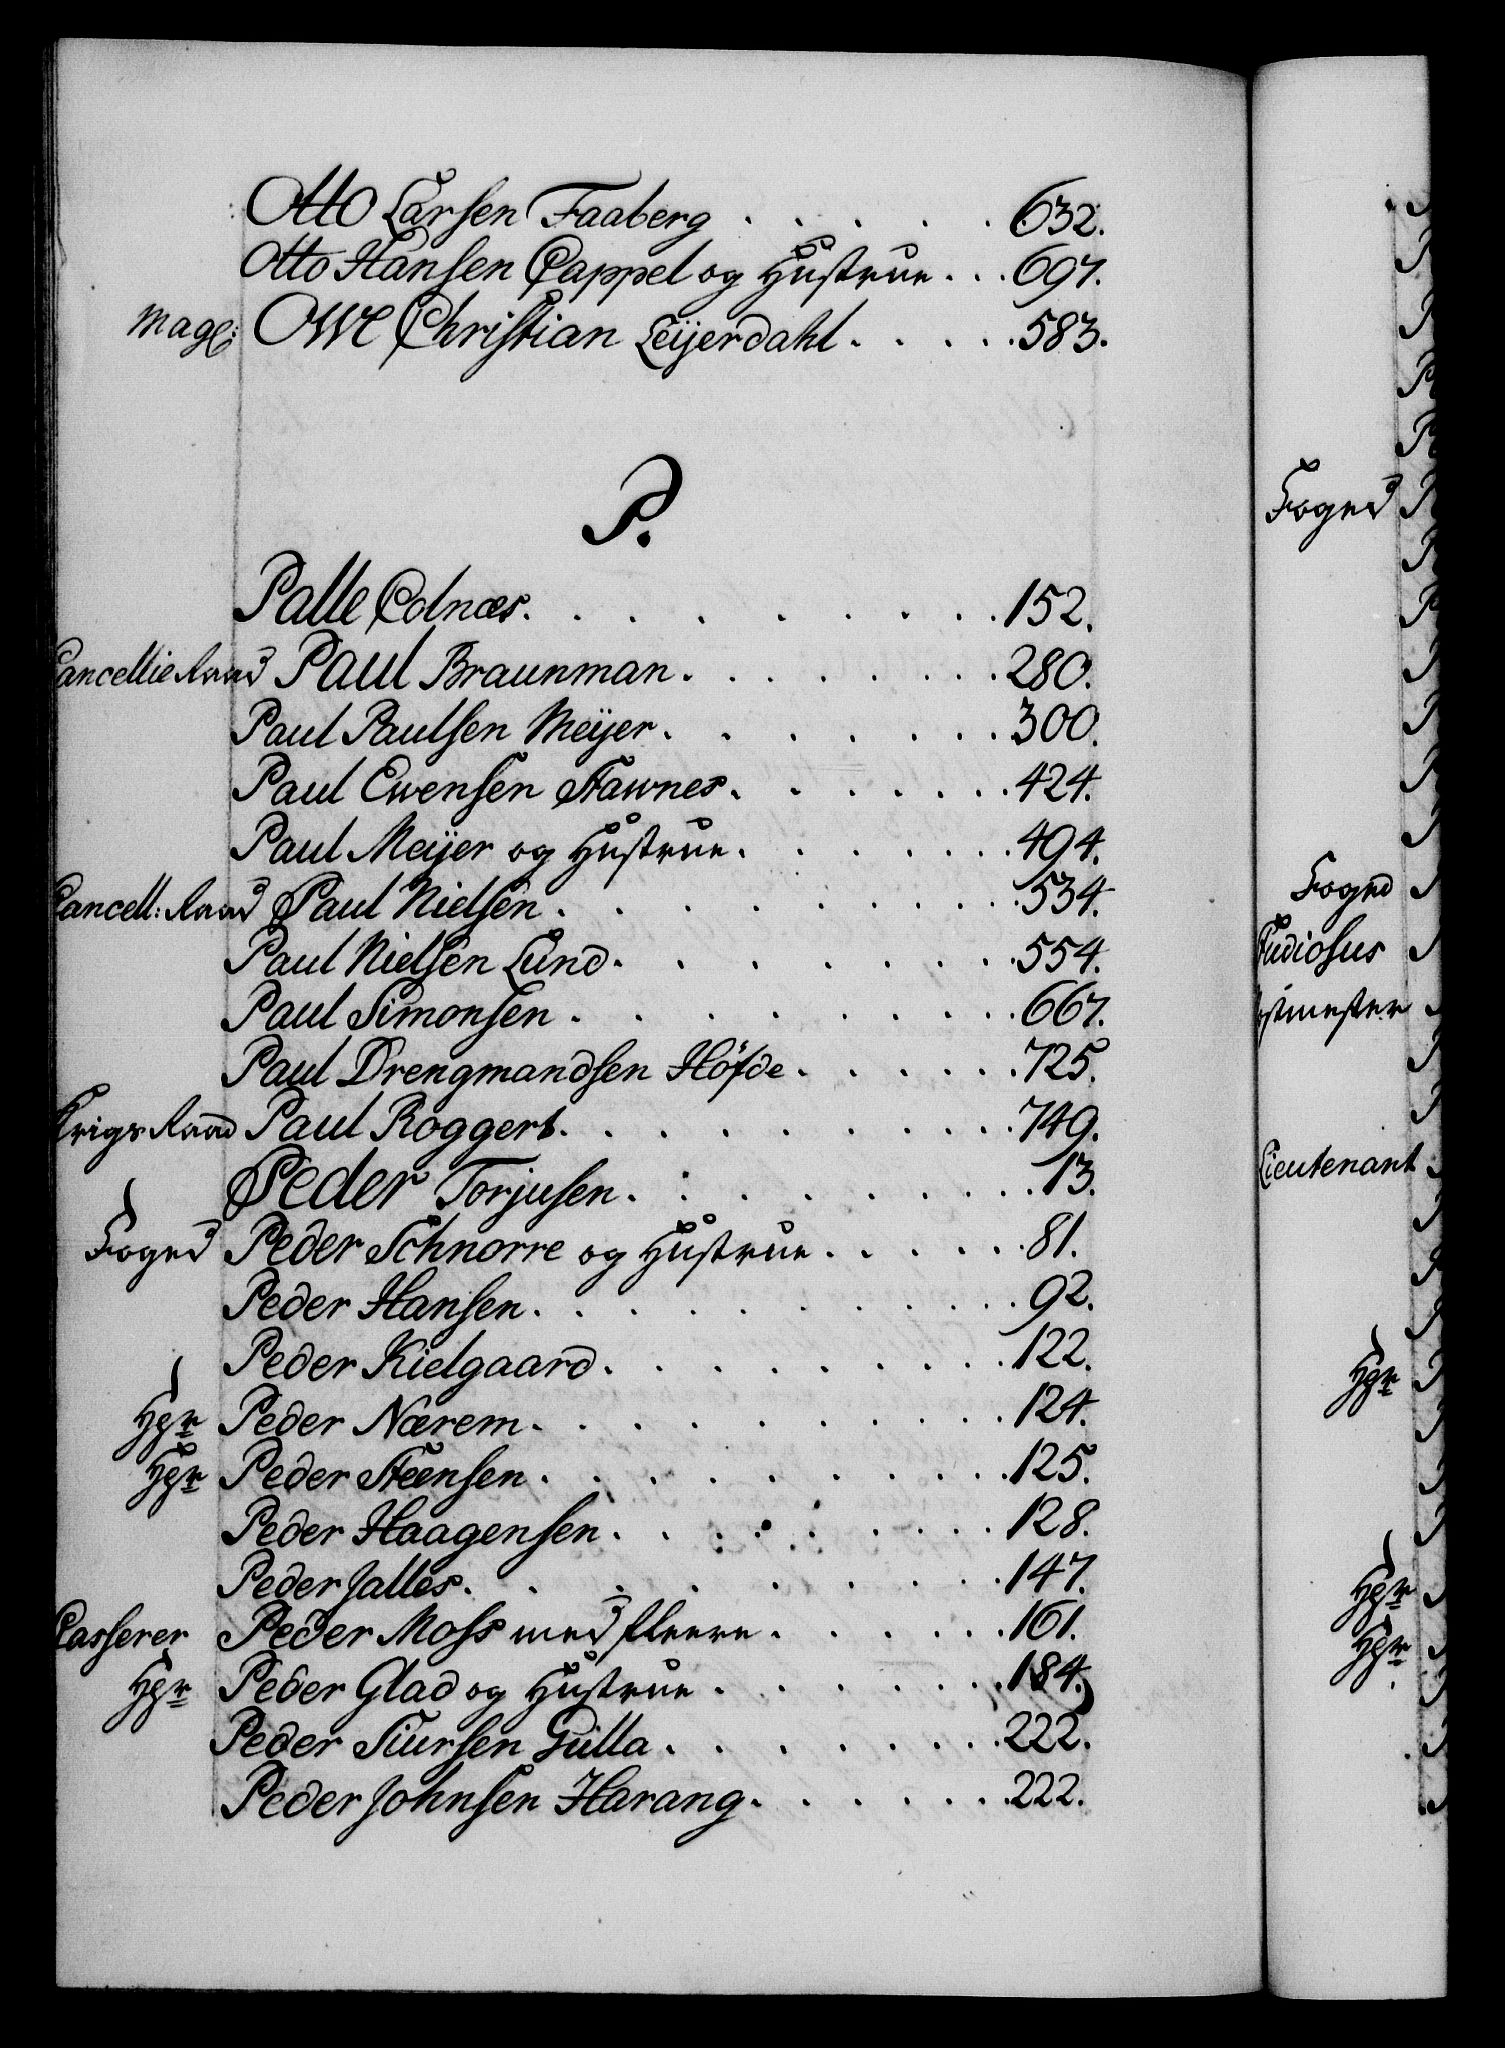 Otto Larsen Faaberg . . . . . . 632.
Otto Hansen Cappel og Hustrue . . . 697.
Mag: Owe Christian Leÿerdahl . . . . . 583.
P.
Palle Colnæs . . . . . . . . 152.
Cancellie Raad Paul Braunman . . . . . . . . 280.
Paul Paulsen Meÿer . . . . . . . 300.
Paul Ewensen Stawnes . . . . . . . 424.
Paul Meÿer og Hustrue . . . . . . . 494.
Cancell: Raad Paul Nielsen . . . . . . . . . 534.
Paul Nielsen Lund . . . . . . . . 554.
Paul Simonsen . . . . . . . . . 667.
Paul Drengmandsen Höfde . . . . . . 725.
Krigs Raad Paul Roggert . . . . . . . . . 749.
Peder Torjusen . . . . . . . . 13.
Foged Peder Schnorre og Hustrue . . . . . 81.
Peder Hansen . . . . . . . . . 92.
Peder Kielgaard . . . . . . . . 122.
Hgr Peder Nærem . . . . . . . . . 124.
Hgr Peder Steensen . . . . . . . . . 125.
Peder Haagensen . . . . . . . . 128.
Peder Jalles . . . . . . . . . 147.
Casserer Peder Moss med fleere . . . . . . 161.
Hgr Peder Glad og Hustrue . . . . . . . 184.
Peder Siursen Gulla . . . . . . . 222.
Peder Johnsen Harang . . . . . . 222.
Foged
Foged
Studiosus
Lieutenant
Hgr
Hgr
Hgr